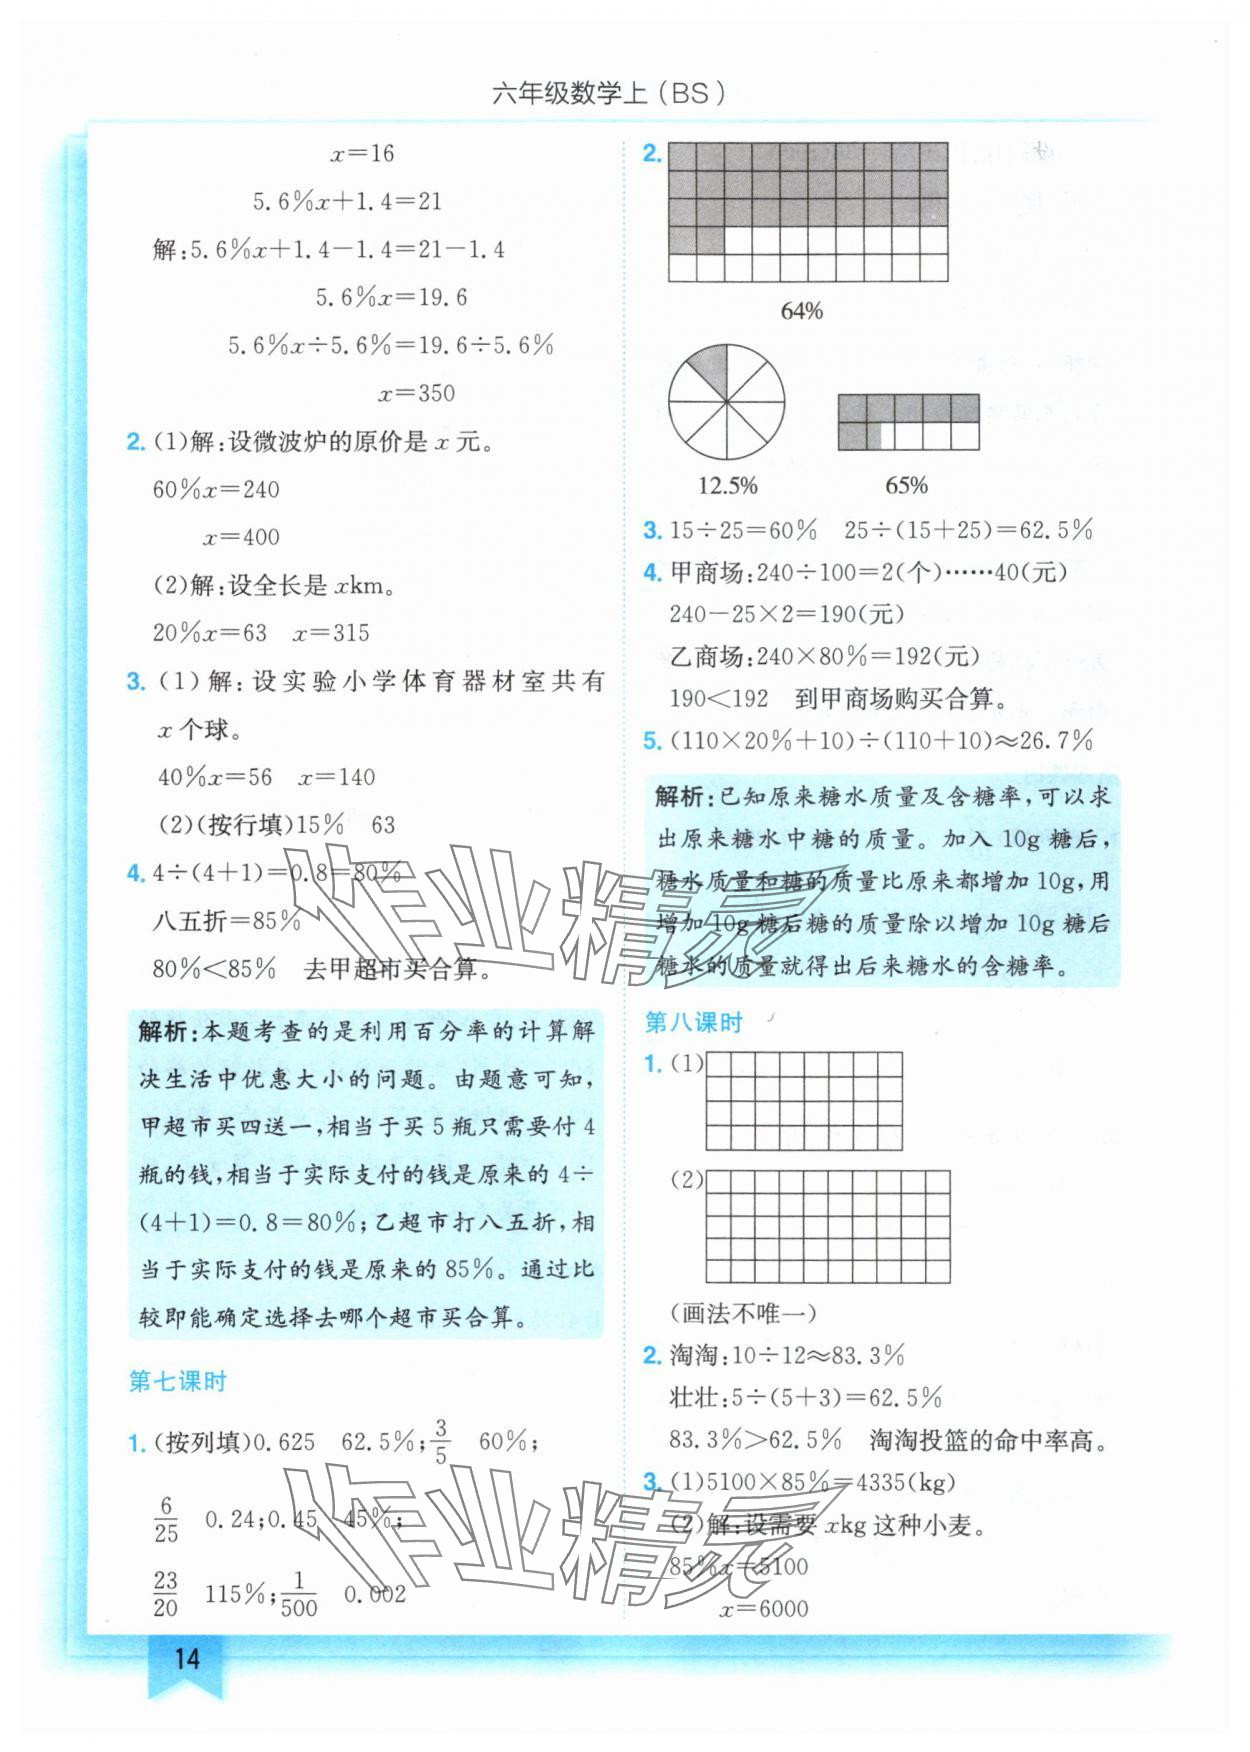 六年级数学上(BS)
x=16
5.6%x+1.4=21
解:5.6%x+1.4-1.4=21-1.4
5.6%x=19.6
5.6%x÷5.6%=19.6÷5.6%
x=350
2. (1)解:设微波炉的原价是 x 元。
60%x=240
x=400
(2)解:设全长是 xkm。
20%x=63 x=315
3. (1)解:设实验小学体育器材室共有
x 个球。
40%x=56 x=140
(2)(按行填)15% 63
4. 4÷(4+1)=0.8=80%
八五折=85%
80%<85% 去甲超市买合算。
解析:本题考查的是利用百分率的计算解
决生活中优惠大小的问题。由题意可知,
甲超市买四送一,相当于买 5 瓶只需要付 4
瓶的钱,相当于实际支付的钱是原来的 4÷
(4+1)=0.8=80%;乙超市打八五折,相
当于实际支付的钱是原来的 85%。通过比
较即能确定选择去哪个超市买合算。
第七课时
1. (按列填)0.625 62.5%; 3/5 60%;
6/25 0.24;0.45 45%;
23/20 115%; 1/500 0.002
14
2.
64%
12.5% 65%
3. 15÷25=60% 25÷(15+25)=62.5%
4. 甲商场:240÷100=2(个)……40(元)
240-25×2=190(元)
乙商场:240×80%=192(元)
190<192 到甲商场购买合算。
5. (110×20%+10)÷(110+10)≈26.7%
解析:已知原来糖水质量及含糖率,可以求
出原来糖水中糖的质量。加入 10g 糖后,
糖水质量和糖的质量比原来都增加 10g,用
增加 10g 糖后糖的质量除以增加 10g 糖后
糖水的质量就得出后来糖水的含糖率。
第八课时
1. (1)
(2)
(画法不唯一)
2. 淘淘:10÷12≈83.3%
壮壮:5÷(5+3)=62.5%
83.3%>62.5% 淘淘投篮的命中率高。
3. (1)5100×85%=4335(kg)
(2)解:设需要 xkg 这种小麦。
85%x=5100
x=6000
作业精灵
作业精灵